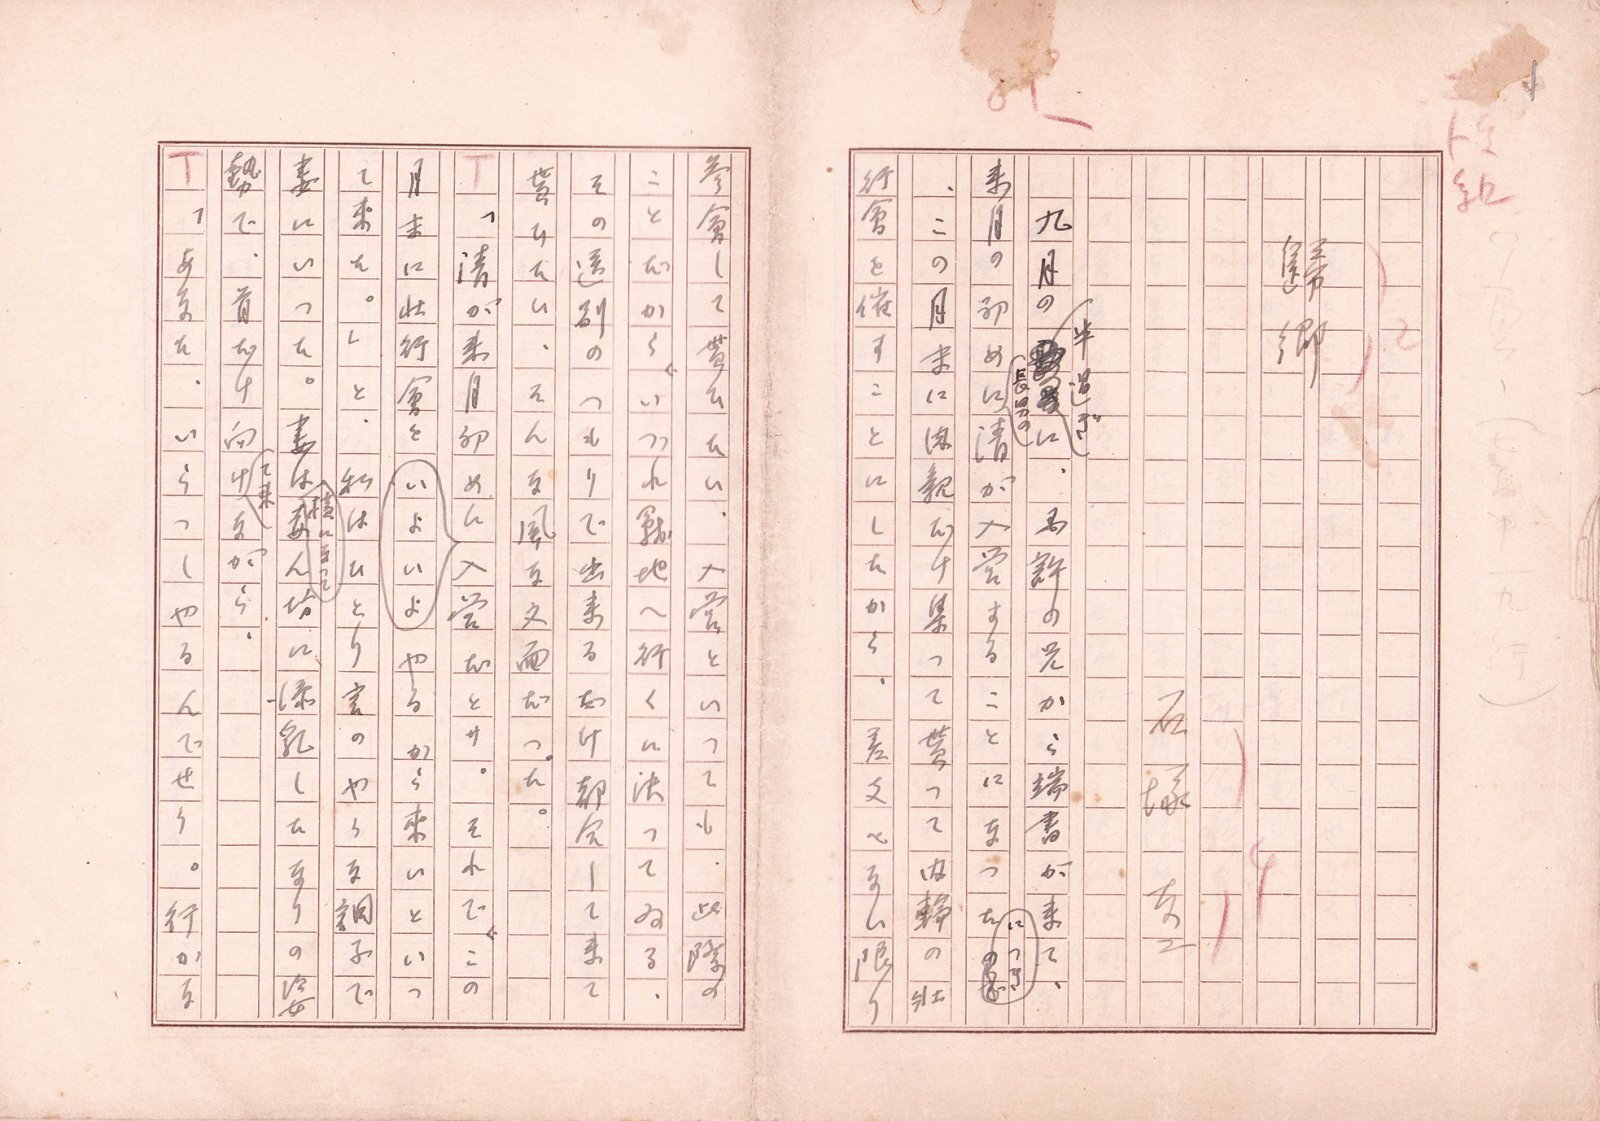 歸郷
九月の半過ぎに、馬許の兄から端書が来て、
来月の初めに長男の清が入営することになったにつき
、この月末に肉親だけ集って貰って内輪の壮
行會を催すことにしたから、差支へない限り
参會して貰ひたい、入営といっても、此際の
ことだから、いづれ戦地へ行くに決ってゐる、
その送別のつもりで出来るだけ都合して来て
貰ひたい、そんな風な文面だった。
「清が来月初めに入営だとサ。それで、この
月末に壮行會をいよいよやるから来いといっ
て来た。」と、私はひとり言のやうな調子で
妻にいった。妻は横になって赤ん坊に添乳したなりの姿
勢で、首だけ向けて来ながら、
「あなた、いらっしやるんでせう。行かな